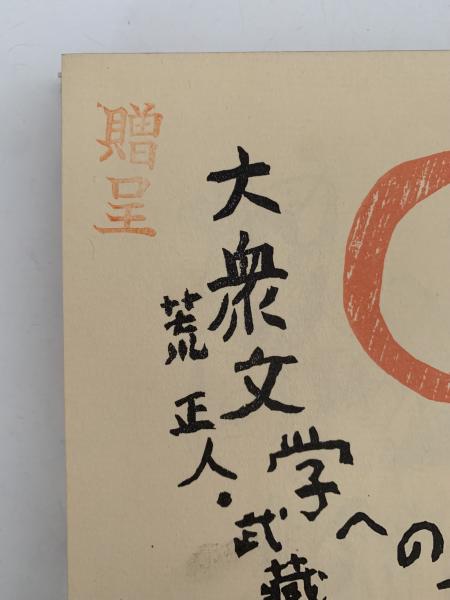 贈呈
大衆文学への
荒正人・武蔵